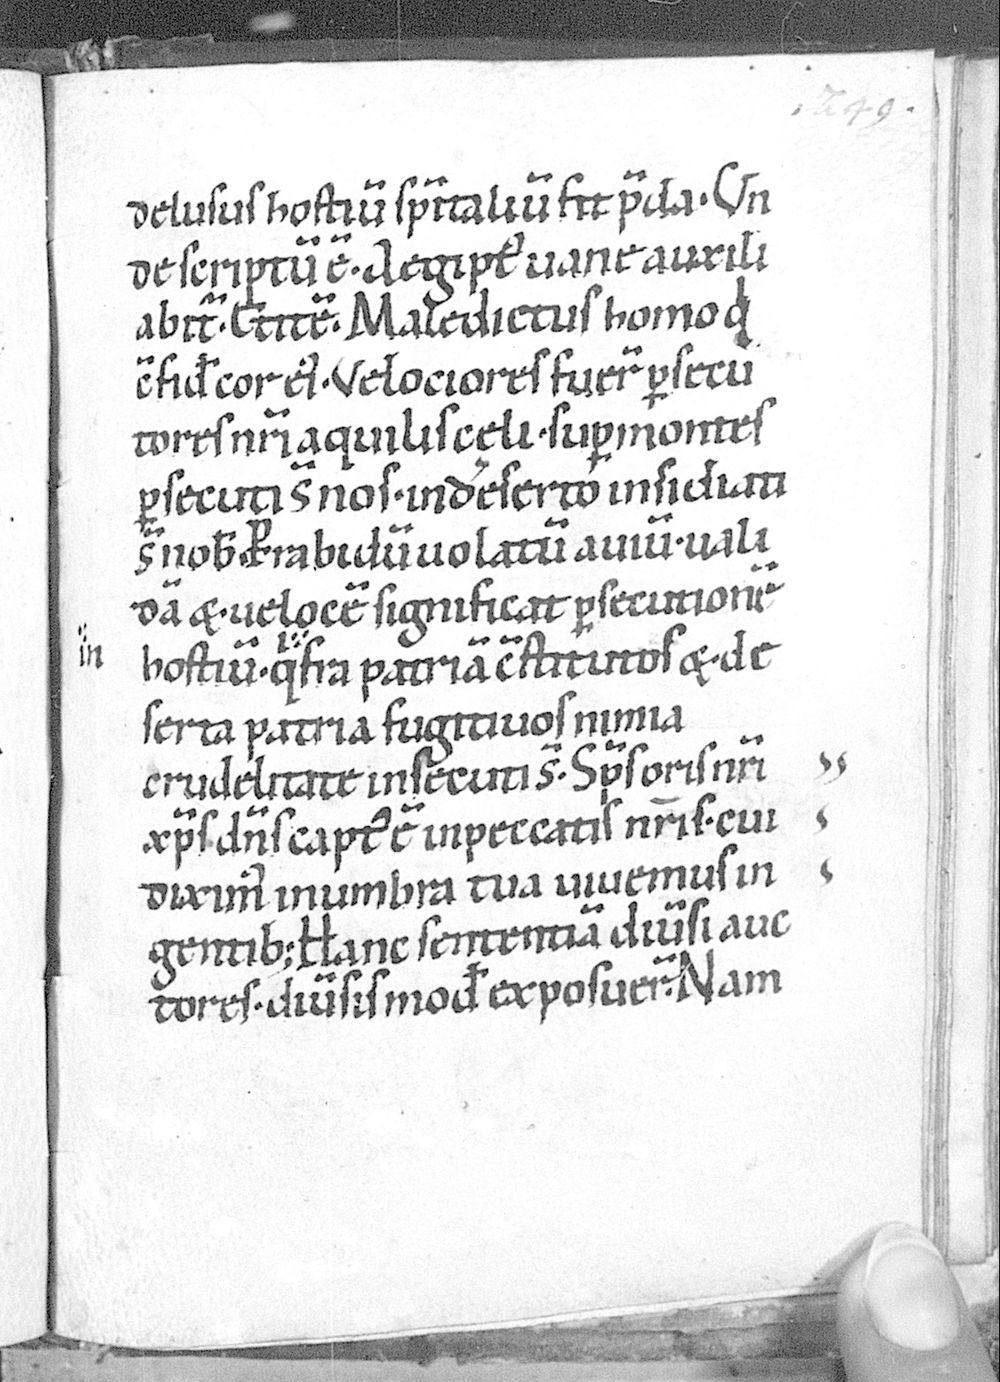 .249.
delusus hostiũ sp̃italiũ fit p̃da. Un
de scriptũ ẽ. Aegipt᷒ uane auxili
abit̃. Et itẽ. Maledictus homo q̇
c̃fid̃ cor ei᷒. Velociores fuer̃ ꝑsecu
tores nr̃i aquilis cęli. suꝑ montes
ꝑsecuti s̃ nos. in deserto insidiati
s̃ nob̃. Ꝑ rabidũ uolatũ auiũ. uali
dã &. uelocẽ significat ꝑsecutionẽ
in
hostiũ. qͥ fra patriã c̃stitutos &. de
serta patria fugitiuos nimia
crudelitate insecuti s̃. Sp̃s oris nr̃i
xp̃s dñs capt᷒ ẽ in peccatis nr̃is. cui
diximᷤ in umbra tua uiuemus in
gentib; Hanc sententiã diũsi auc
tores. diũsis mod̃ exposuer̃. Nam